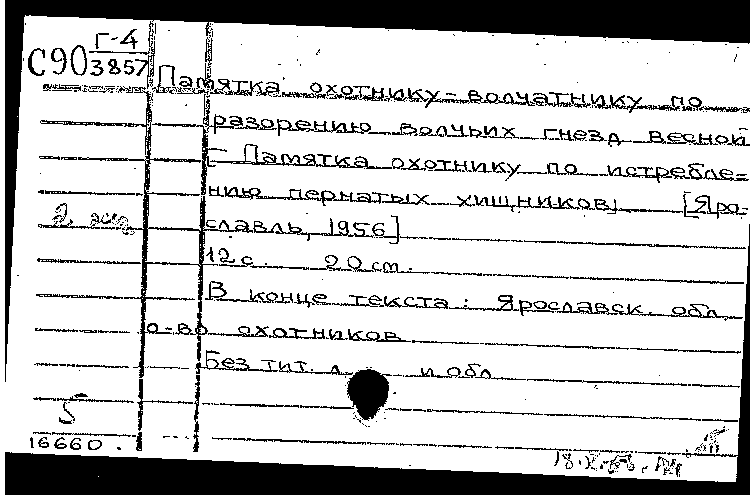 Г-4
С90 3857
Памятка охотнику-волчатнику по
разорению волчьих гнезд весной
[Памятка охотнику по истребле=
нию пернатых хищников] [Яро-
2 экз
славль, 1956]
12 с. 20 см.
В конце текста: Ярославск. обл.
о-во охотников.
Без тит. л. и обл
5
16660.